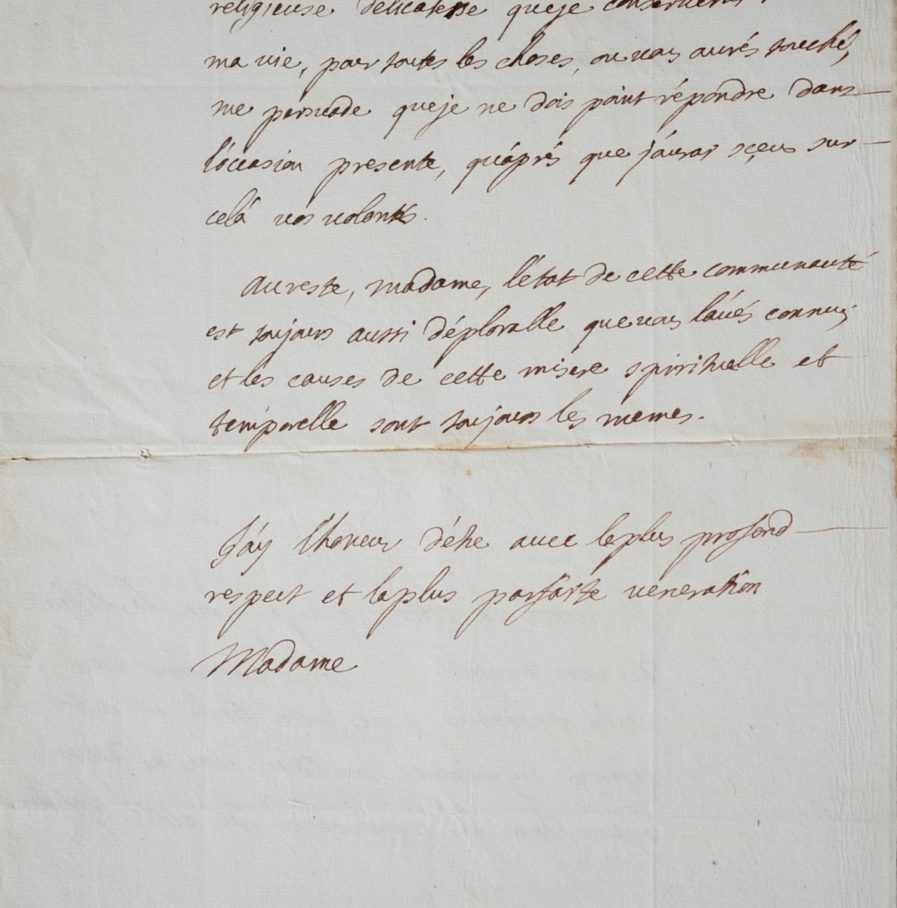 religieuse délicatesse queje conserverai
ma vie, pour toutes les choses, ou vous aurés touché,
me persuade queje ne dois point répondre dans
l'occasion presente, qu'aprés que j'auray sçeu sur
celà vos volontés.
Aureste, madame, l'état de cette communauté
est toujours aussi déplorable que vous l'avés connu;
et les causes de cette misere spirituelle et
temporelle sont toujours les memes.
J'ay l'honeur d'étre avec leplus profond
respect et laplus parfaite veneration
Madame